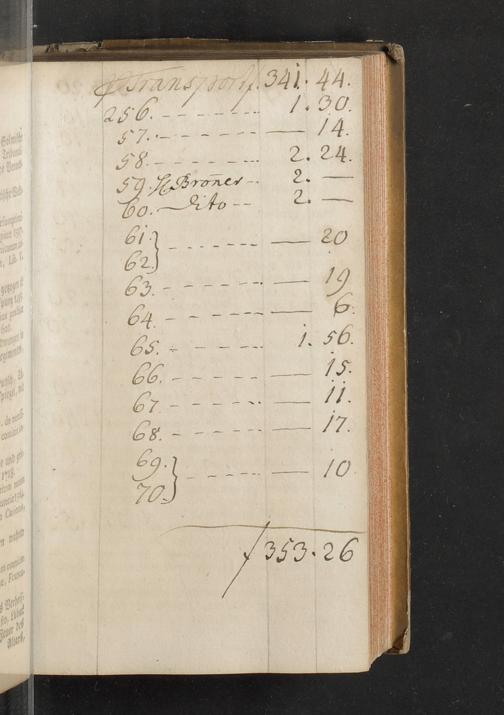 Transport f. 341. 44.
256. - - - - - - - 1. 30.
57. - - - - - - - — 14.
58. - - - - - - 2. 24.
59. H. Broner - - 2. —
60. — dito - - 2. —
61.
62. } - - - - - - — 20
63. - - - - - - - — 19
64. - - - - - - - — 6.
65. - - - - - - - 1. 56.
66. - - - - - - - — 15.
67. - - - - - - - — 11.
68. - - - - - - - — 17.
69.
70. } - - - - - - — 10
f 353. 26